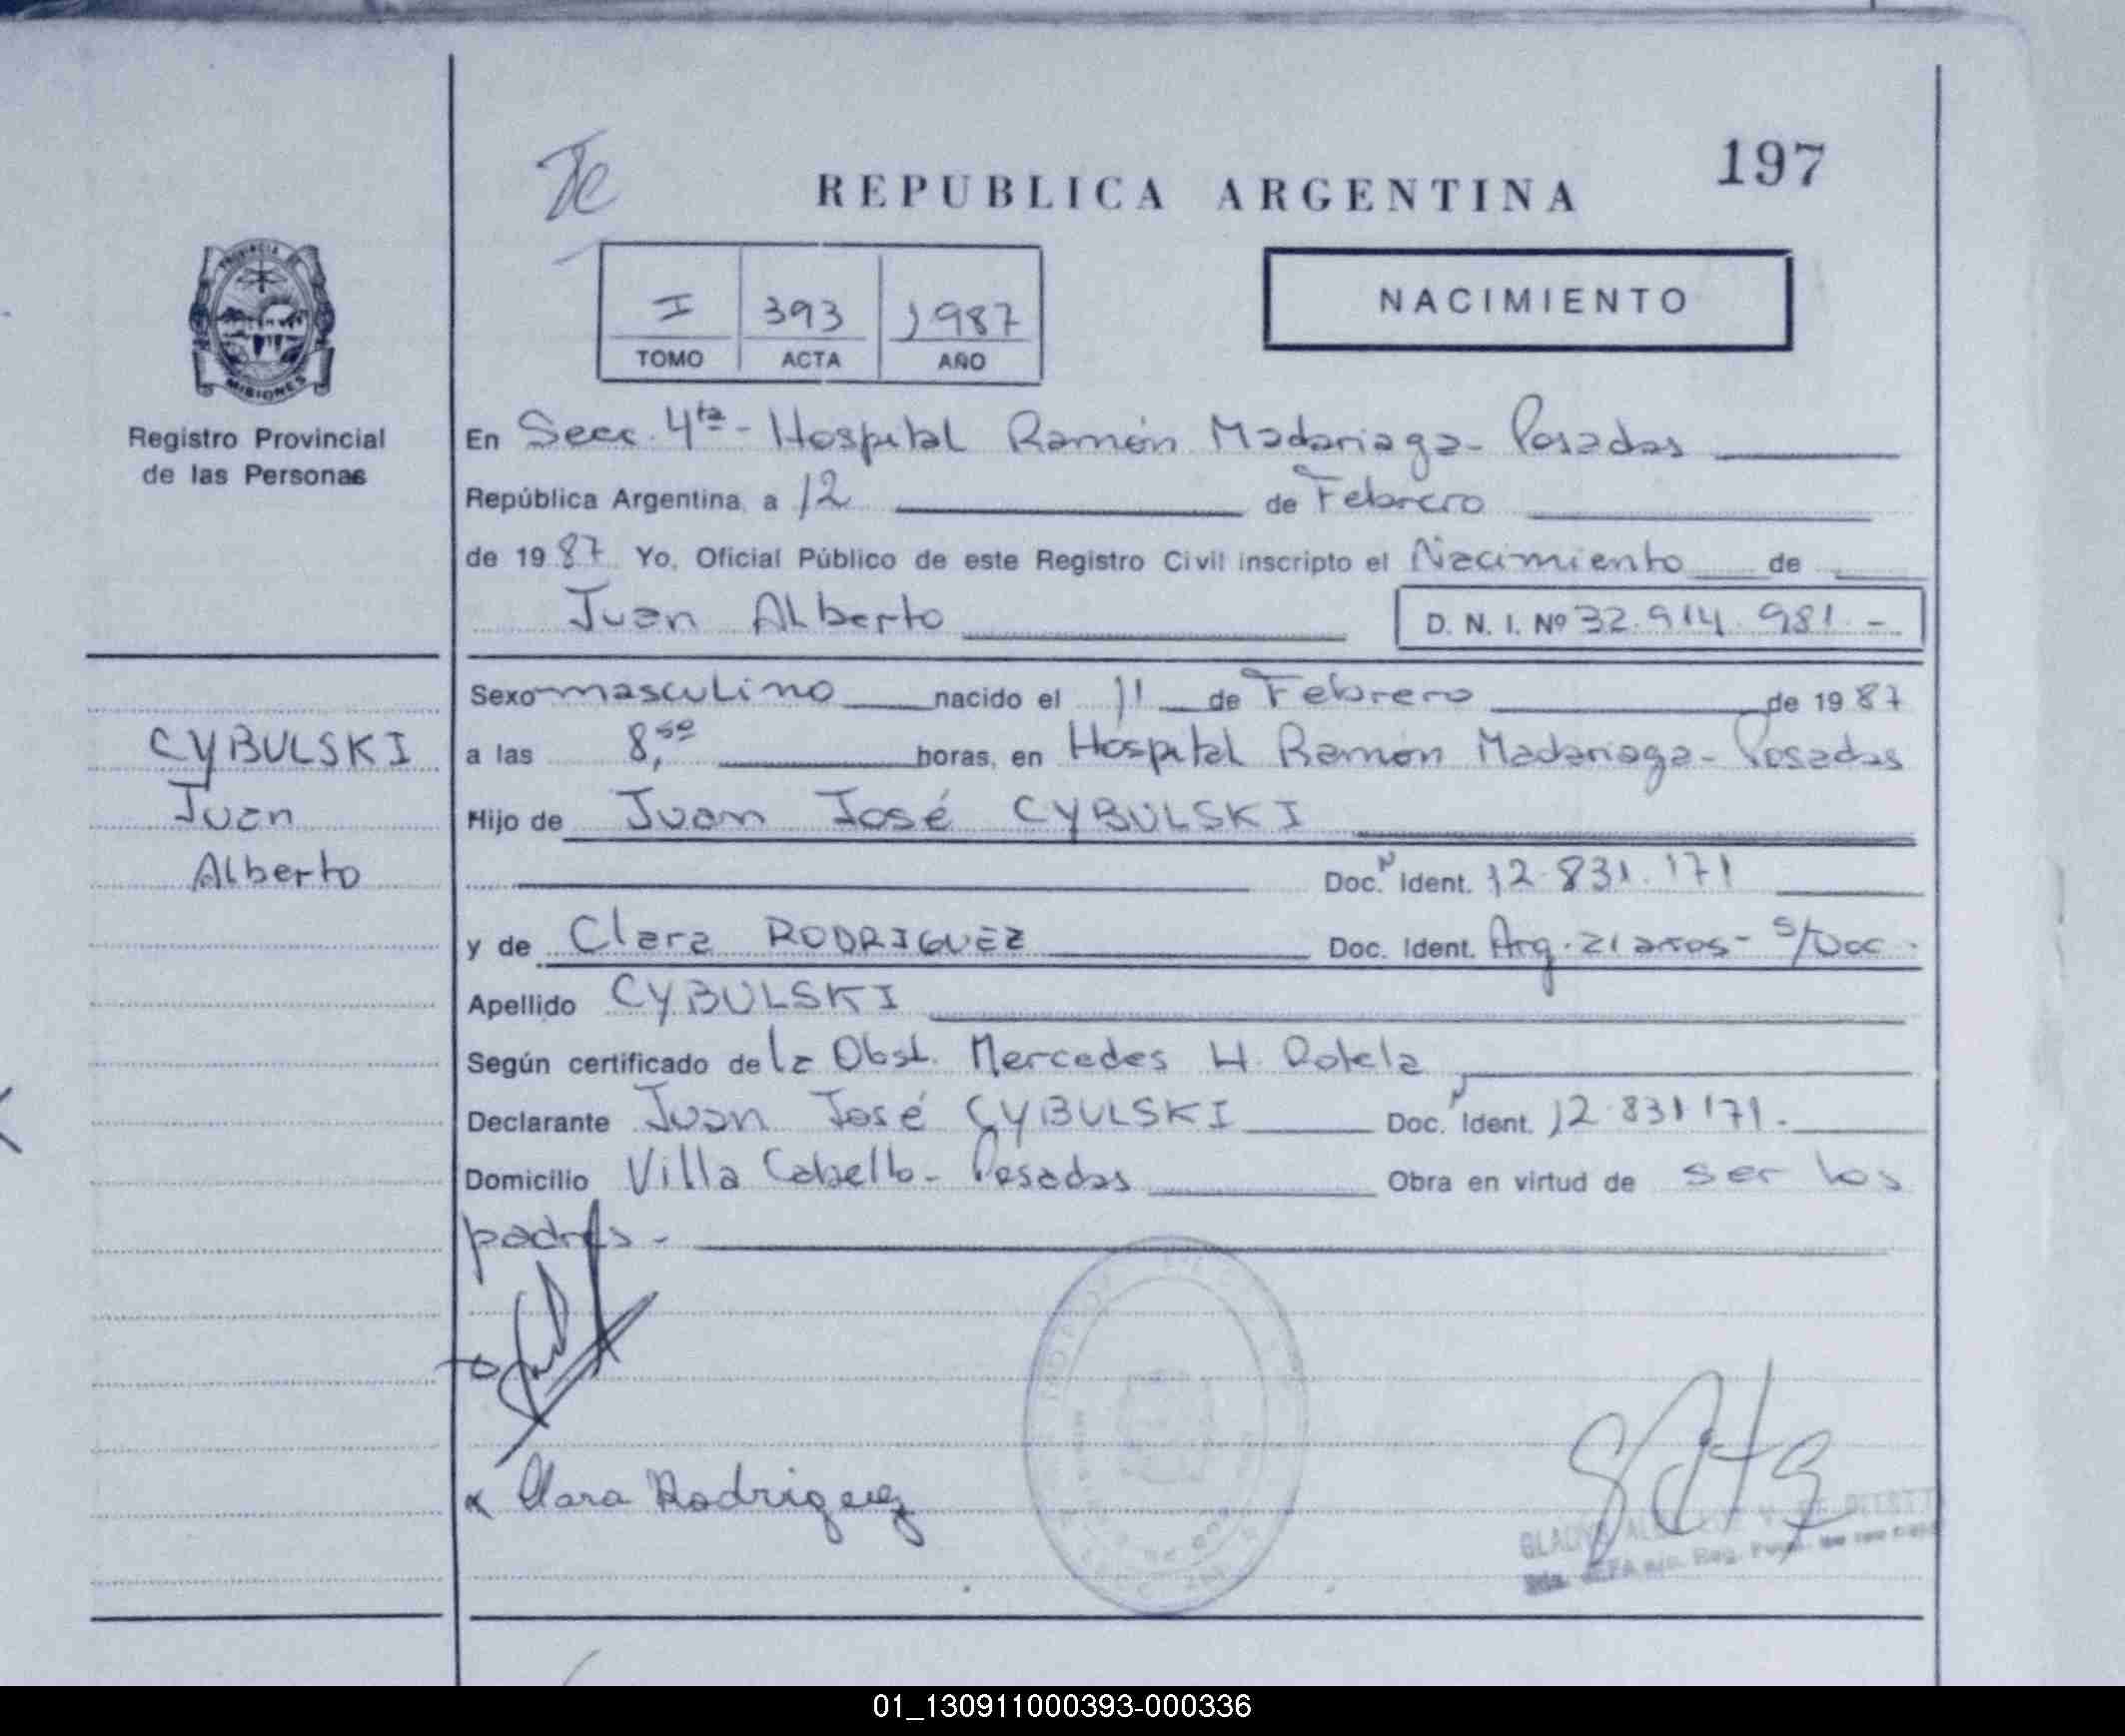 197
REPUBLICA ARGENTINA
NACIMIENTO
I 393 1987
TOMO ACTA AÑO
PROVINCIA
MISIONES
Registro Provincial
de las Personas
En Secc. 4ta - Hospital Ramón Madariaga - Posadas
República Argentina, a 12 de Febrero
de 1987 Yo, Oficial Público de este Registro Civil inscripto el Nacimiento de
Juan Alberto D. N. I. Nº 32.914.981.-
Sexo masculino nacido el 11 de Febrero de 1987
a las 8,50 horas, en Hospital Ramón Madariaga - Posadas
Hijo de Juan José CYBULSKI
Doc. N Ident. 12.831.171
y de Clara RODRIGUEZ Doc. Ident. Arg. 21 años - s/Doc.
Apellido CYBULSKI
Según certificado de la Obst. Mercedes H. Rotela
Declarante Juan José CYBULSKI Doc. N Ident. 12.831.171.
Domicilio Villa Cabello - Posadas Obra en virtud de ser los
padres -
CYBULSKI
Juan
Alberto
Clara Rodriguez
GLADYS
01_130911000393-000336